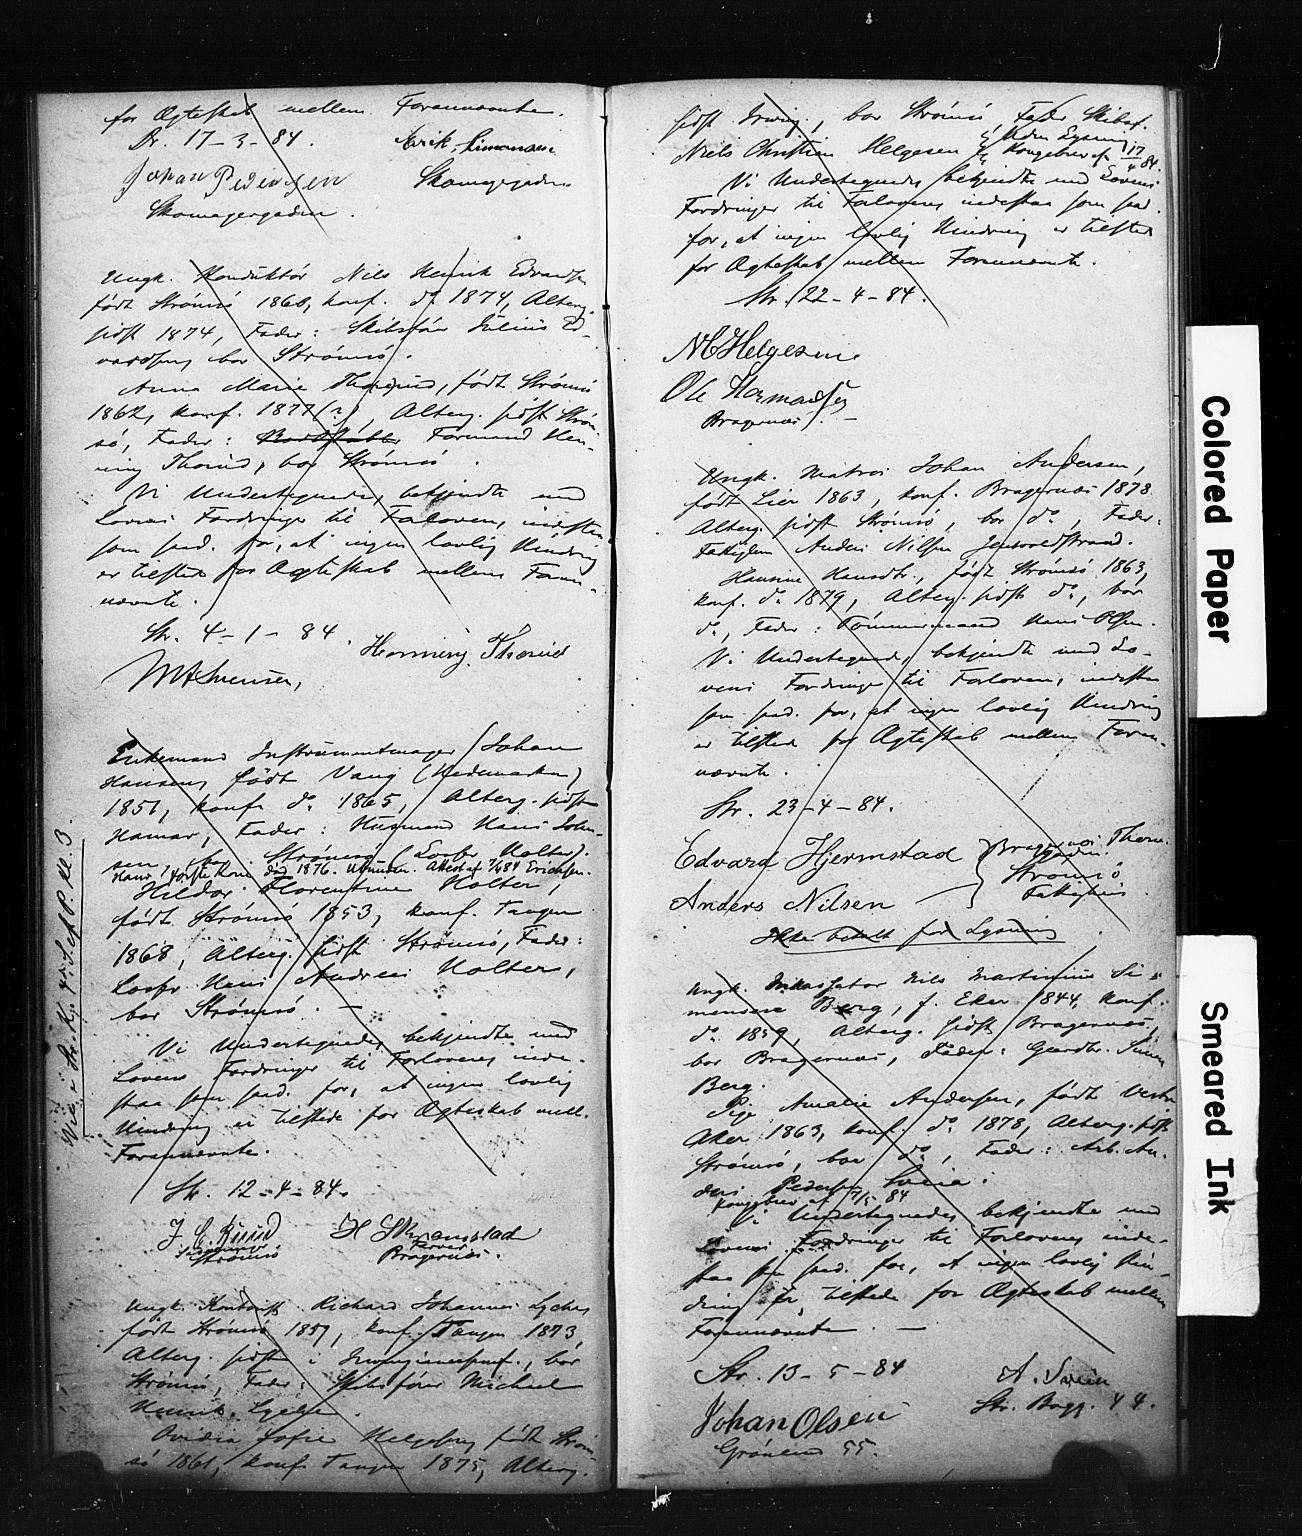 for Ægteskab mellem Forannævnte.
Dr. 17-3-84.
Johan Pedersen
Skomagergaden
Skomagergaden.
Ungk. Konduktør Nils Henrik Edvardsen
født Strømsø 1860, konf. do 1874, Alterg.
sidst 1874, Fader: Skibsfører Julius Ed-
vardsen, bor Strømsø.
Anna Marie Thorud, født Strømsø
1862, konf. 1877 (?), Alterg. sidst Strøm-
sø, Fader: Formand Hen-
ning Thorud, bor Strømsø.
Vi Undertegnede, bekjendte med
Lovens Fordringer til Forlovere, indestaa
som saad. for, at ingen lovlig Hindring
er tilstede for Ægteskab mellem Foran-
nævnte.
Str. 4-1-84.
Henning Thorud
Enkemand Instrumentmager Johan
Hansen, født Vang (Hedemarken)
1851, konf. do 1865, Alterg. sidst
Hamar, Fader: Husmand Hans Johan-
sen, bor Strømsø (Losser Holter).
Hans første Kone død 1876. Attest af Erichsen.
Hilda Florentine Holter,
født Strømsø 1853, konf. Tangen
1868, Alterg. sidst Strømsø, Fader:
Losser Hans Andreas Holter,
bor Strømsø.
Vi Undertegnede, bekjendte med
Lovens Fordringer til Forlovere, inde-
staa som saad. for, at ingen lovlig
Hindring er tilstede for Ægteskab mell.
Forannævnte.
Str. 12-4-84.
J. C. Ruud
Strømsø
H Skramstad
Bragernæs.
Viet i Str. K. 7de Sept. P. Kl. 3.
Ungk. Kontorist Richard Johannes Lyche,
født Strømsø 1857, konf. Tangen 1873,
Alterg. sidst i, bor
Strømsø, Fader: Skibsfører Michael
Henrik Lyche.
Ovidia Sofie Helgesen, født Strøm-
sø 1861, konf. Tangen 1875, Alterg.
sidst, bor Strømsø, Fader Skibsf.
Niels Christian Helgesen
Uden Lysning
Kongebrev af 17/4 84.
Vi Undertegnede, bekjendte med Lovens
Fordringer til Forlovere, indestaa som saad.
for, at ingen lovlig Hindring er tilstede
for Ægteskab mellem Forannævnte.
Str. 22-4-84.
N C Helgesen.
Ole Hermansen
Bragernæs.
Ungk. Matros Johan Andersen,
født Lier 1863, konf. Bragernæs 1878
Alterg. sidst Strømsø, bor do, Fader:
Fattiglem Anders Nilsen
Hansine Hansdtr., født Strømsø 1863,
konf. do 1879, Alterg. sidst do, bor
do, Fader: Tømmermand Hans Olsen.
Vi Undertegnede, bekjendte med Lo-
vens Fordringer til Forlovere, indestaa
som saad. for, at ingen lovlig Hindring
er tilstede for Ægteskab mellem Foran-
nævnte.
Str. 23-4-84.
Edvard Hjermstad
Anders Nilsen
Strømsø
Ikke betalt for Lysning
Ungk. Inkassator Nils Martinius Si-
monsen Berg, f. Eker 1844, konf.
do 1859, Alterg. sidst Bragernæs,
bor Bragernæs, Fader: Gaardbr. Simen
Berg.
Pige Amalie Andersen, født Vestre
Aker 1863, konf. do 1878, Alterg. sidst
Strømsø, bor do, Fader: Arb. An-
ders Pedersen Svea.
Kongebrev af 7/5 84
Vi Undertegnede, bekjendte med
Lovens Fordringer til Forlovere, inde-
staa som saad. for, at ingen lovlig Hin-
dring er tilstede for Ægteskab mellem
Forannævnte.
Str. 13-5-84
Johan Olsen
Grønland 55.
Str. Bogg. 44.
Colored Paper
Smeared Ink